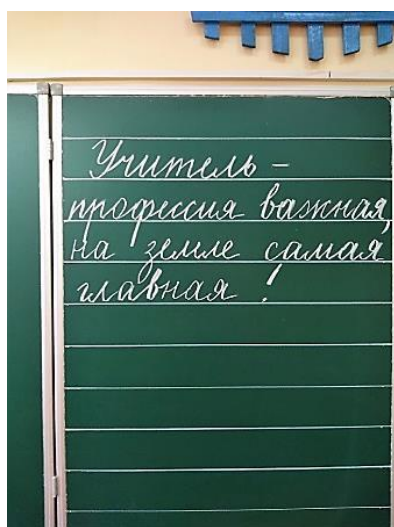 Учитель -
профессия важная,
на земле самая
главная !